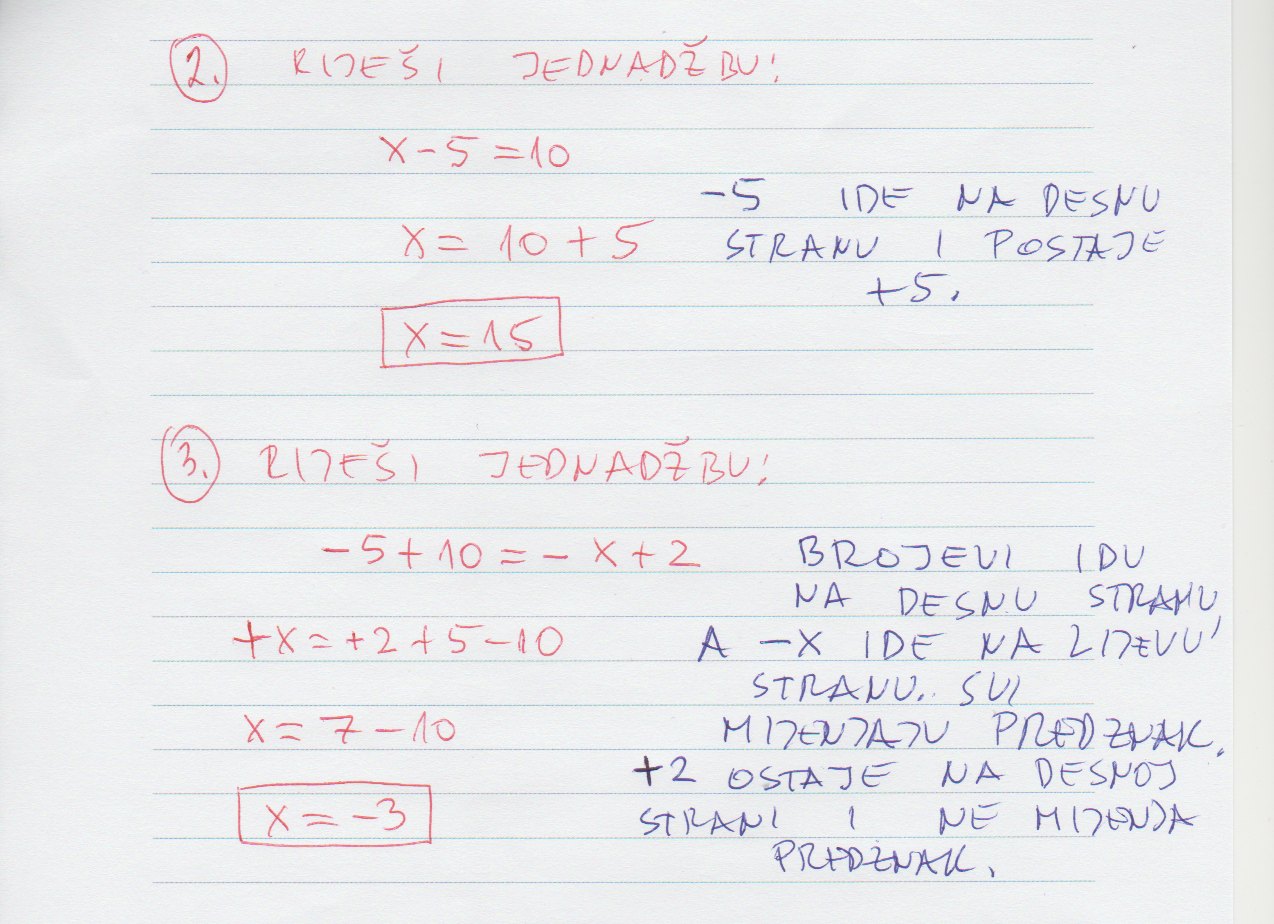 2. RIJEŠI JEDNADŽBU!
x - 5 = 10
-5 IDE NA DESNU
x = 10 + 5 STRANU I POSTAJE
+5.
x = 15
3. RIJEŠI JEDNADŽBU!
-5 + 10 = - x + 2 BROJEVI IDU
NA DESNU STRANU,
+x = +2 + 5 - 10 A -X IDE NA LIJEVU
STRANU. SVI
x = 7 - 10 MIJENJAJU PREDZNAK.
+2 OSTAJE NA DESNOJ
x = -3 STRANI I NE MIJENJA
PREDZNAK.